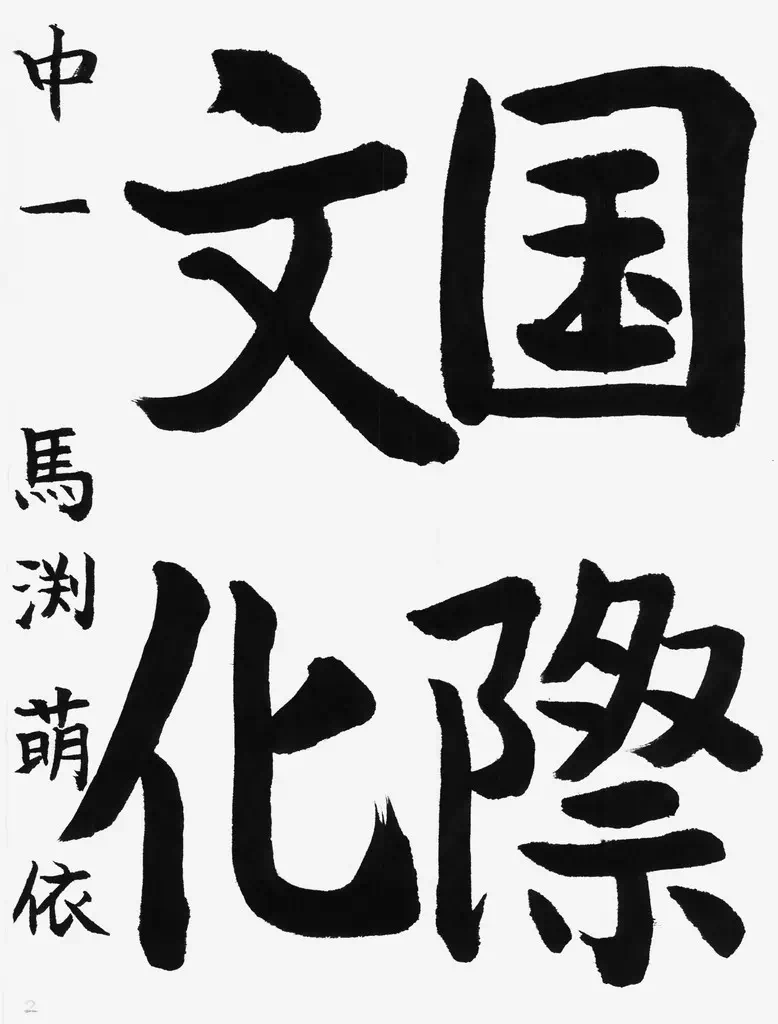 国際
文化
中一 馬渕萌依
2